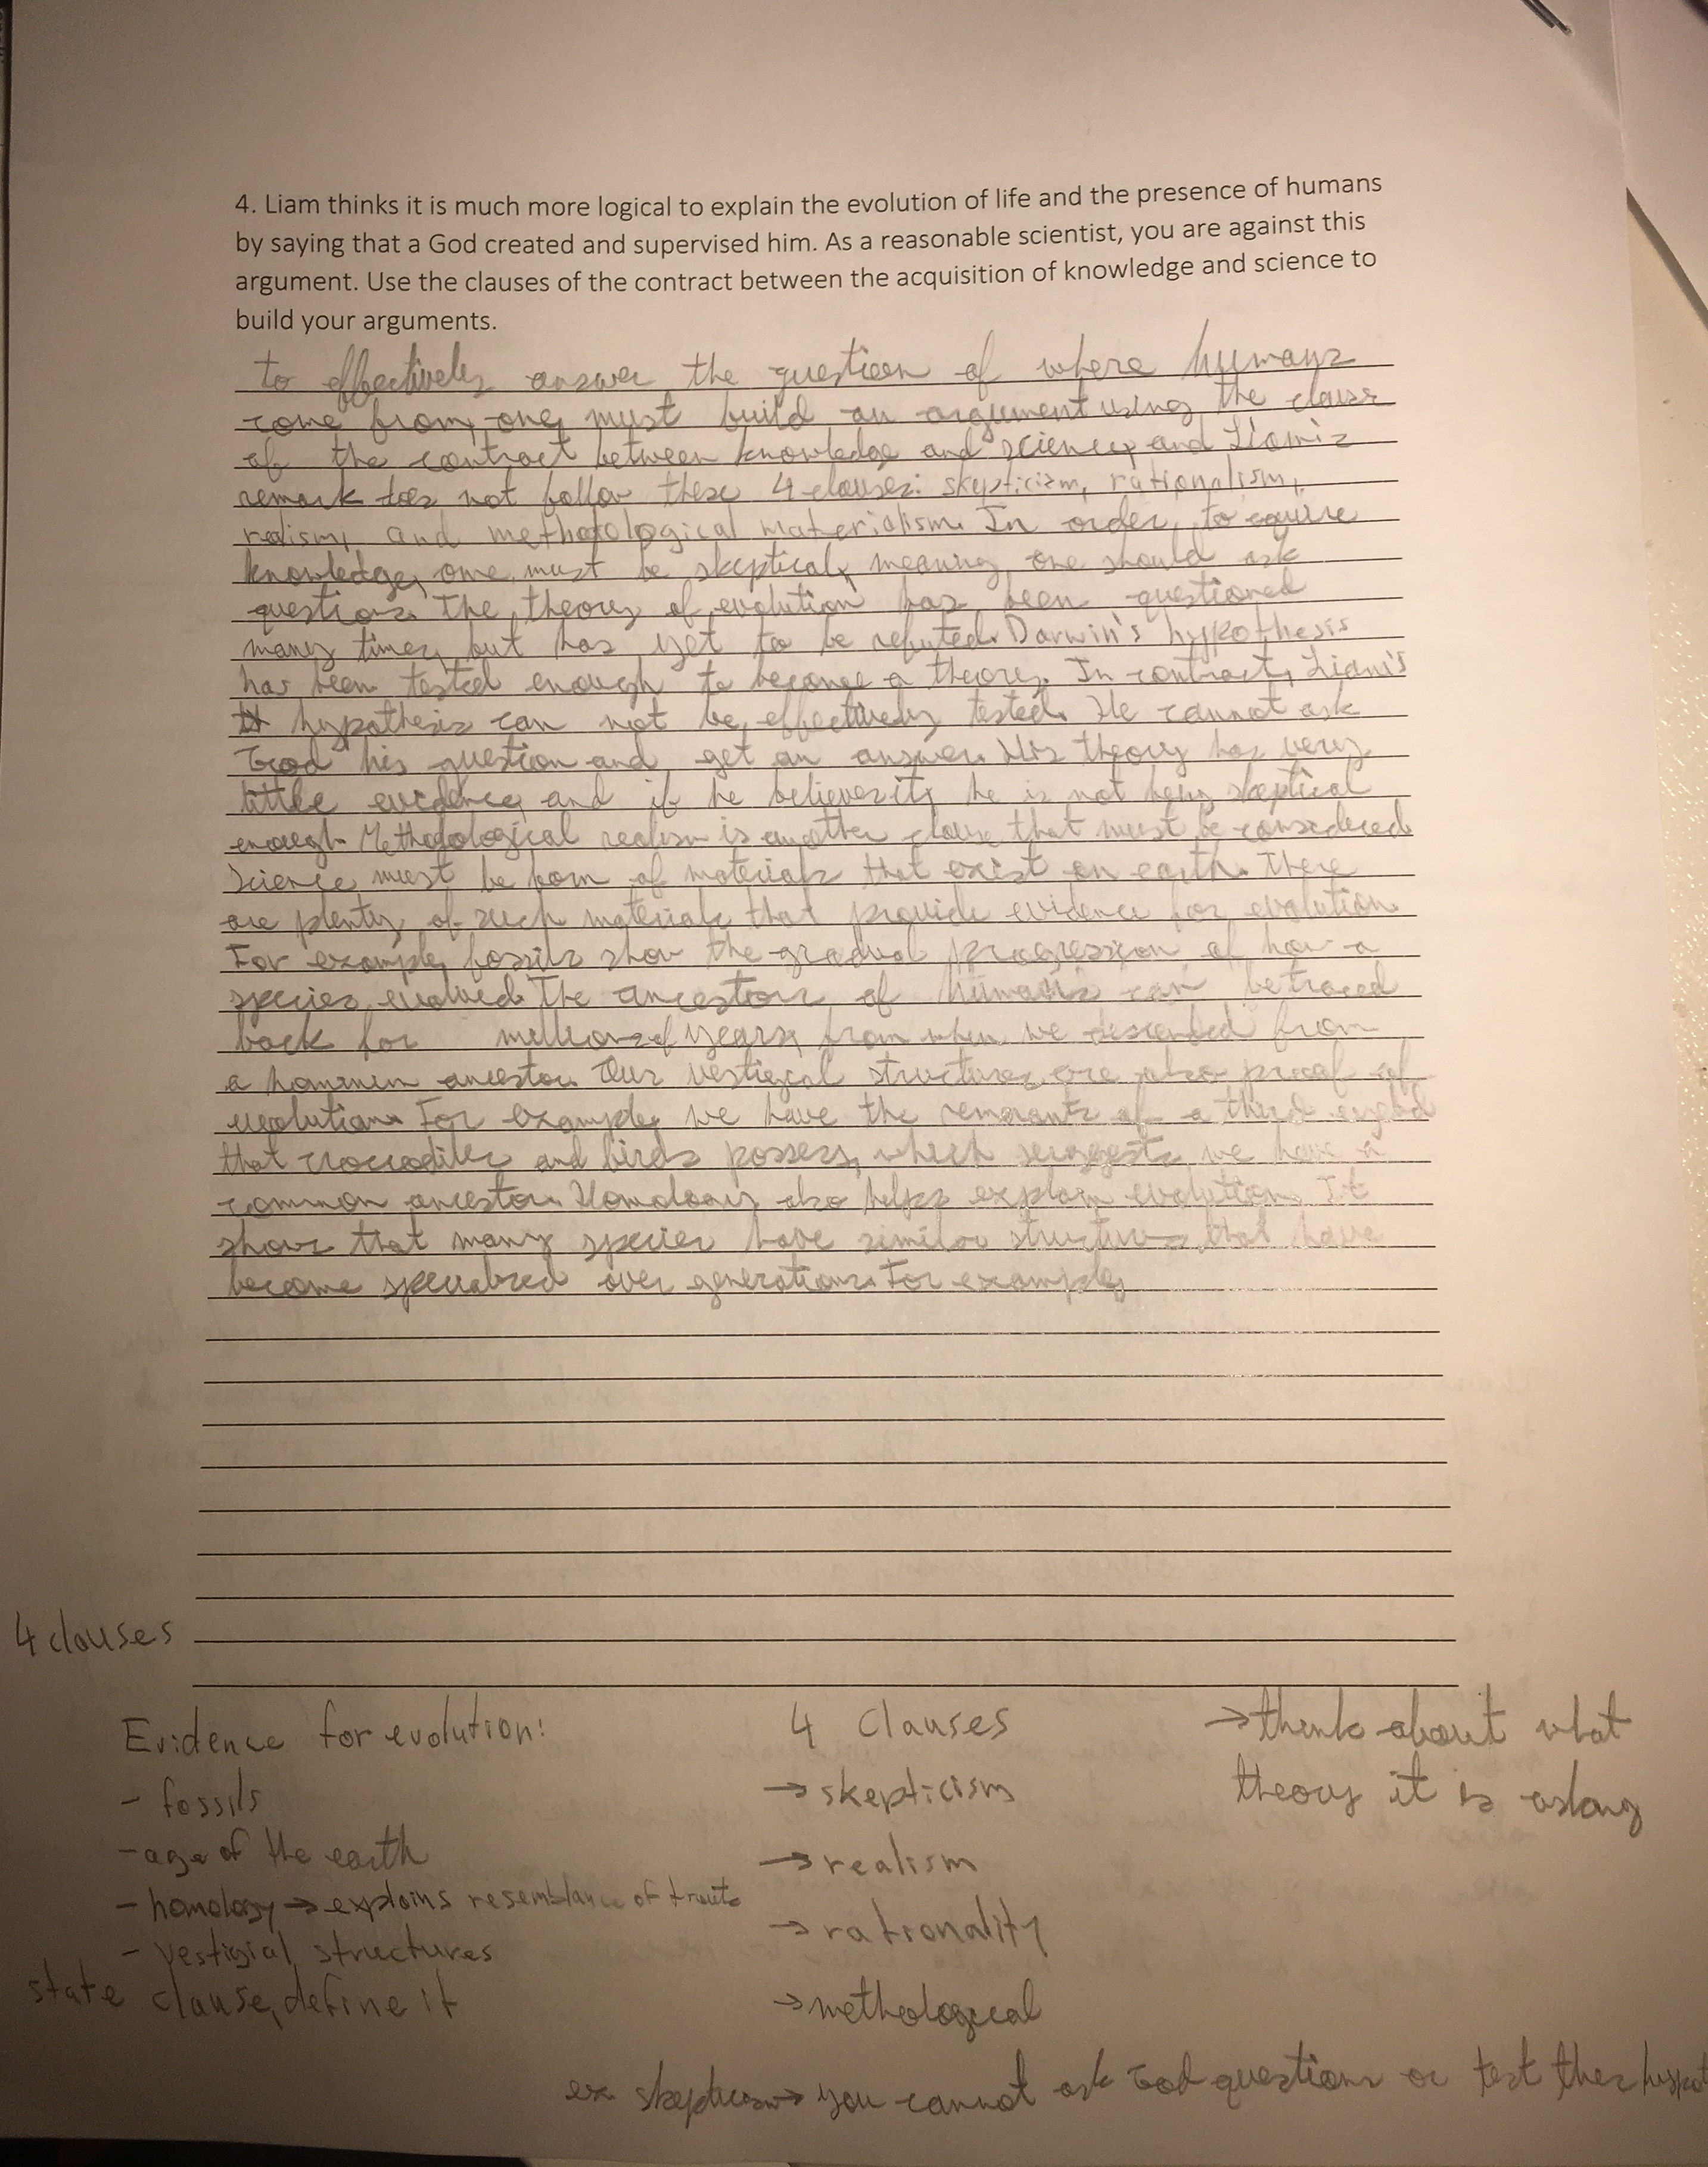 4. Liam thinks it is much more logical to explain the evolution of life and the presence of humans
by saying that a God created and supervised him. As a reasonable scientist, you are against this
argument. Use the clauses of the contract between the acquisition of knowledge and science to
build your arguments.
to effectively answer the question of where humans
come from, one must build an argument using the claus
of the contract between knowledge and science, and Liam's
remark does not follow these 4 clauses: skepticism, rationalism,
realism, and methodological materialism. In order to equire
knowledge, one must be skeptical, meaning one should ask
questions. The theory of evolution has been questioned
many times, but has yet to be refuted. Darwin's hypothesis
has been tested enough to become a theory. In contract, Liam's
hypothesis can not be effectively tested. He cannot ask
God his question and get an answer. His theory has very
little evidence, and if he believes it, he is not being skeptical
enough. Methodological realism is another clause that must be considered.
Science must be born of materials that exist on earth. There
are plenty of such materials that provide evidence for evolution.
For example, fossils show the gradual progression of how a
species evolved. The ancestors of humans can be traced
back for millions of years, from when we descended from
a hominin ancestor. Our vestigial structures are also proof of
evolution. For example, we have the remnants of a third eyelid
that croccodiles and birds possess, which suggests we have a
common ancestor. Homology also helps explain evolution. It
shows that many species have similar structures that have
become specialized over generations. For example,
4 clauses
Evidence for evolution:
- fossils
- age of the earth
- homology → explains resemblance of traits
- vestigial structures
state clause, define it
4 Clauses
→ skepticism
→ realism
→ rationality
→ methological
→ think about what
theory it is asking
ex skepticism → you cannot ask God questions or test